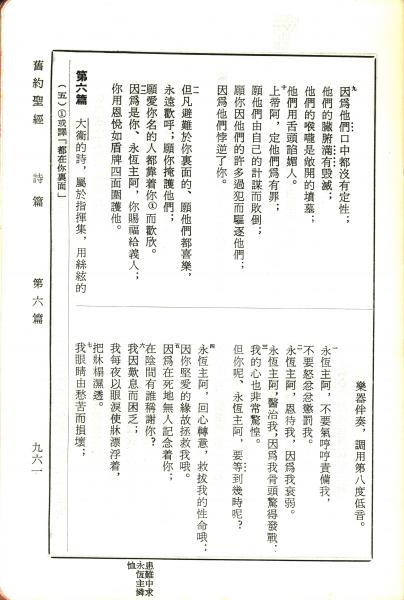 九因爲他們口中都沒有定性；
他們的臟腑滿有毀滅；
他們的喉嚨是敞開的墳墓；
他們用舌頭諂媚人。
十上帝阿，定他們爲有罪；
願他們由自己的計謀而敗倒；
願你因他們的許多過犯而驅逐他們；
因爲他們悖逆了你。
一一但凡避難於你裏面的、願他們都喜樂，
永遠歡呼；願你掩護他們；
願愛你名的人都靠着你①而歡欣。
一二因爲是你、永恆主阿，你賜福給義人；
你用恩悅如盾牌四面圍護他。
第六篇　大衛的詩，屬於指揮集，用絲絃的
樂器伴奏，調用第八度低音。
一永恆主阿，不要氣哼哼責備我，
不要怒忿忿懲罰我。
二永恆主阿，恩待我，因爲我衰弱。
永恆主阿，醫治我，因爲我骨頭驚得發戰：
三我的心也非常驚惶。
但你呢、永恆主阿，要等到幾時呢？
四永恆主阿，回心轉意，救拔我的性命哦；
因你堅愛的緣故拯救我哦。
五因爲在死地無人記念着你；
在陰間有誰稱謝你？
六我因歎息而困乏；
我每夜以眼淚使牀漂浮着，
把牀榻濕透。
七我眼睛由愁苦而損壞；
（五）①或譯『都在你裏面』
舊約聖經　詩篇　第六篇　九六一
患難中求
永恆主憐
恤